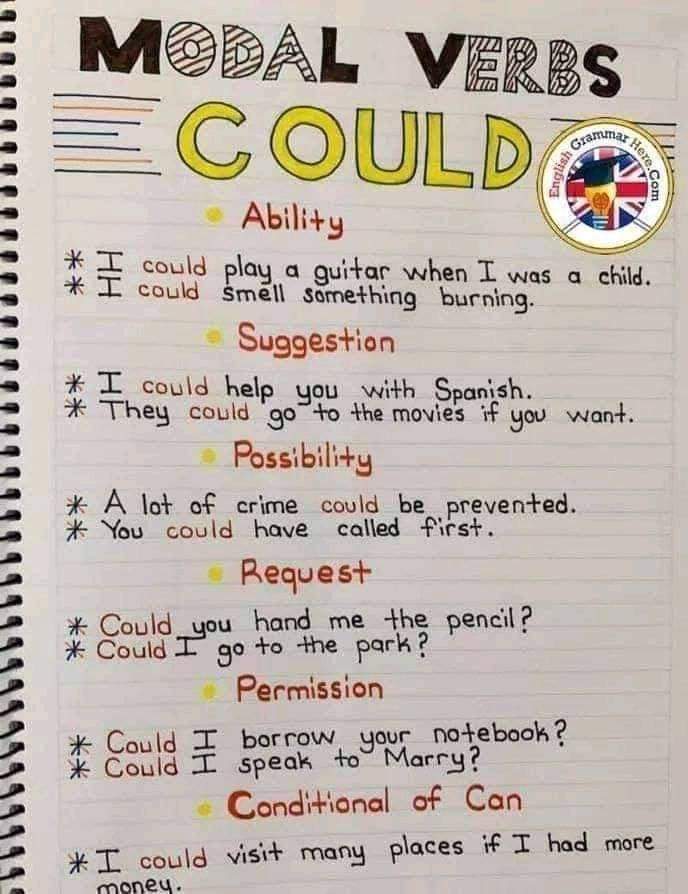 MODAL VERBS
COULD
English Grammar Here.Com
Ability
* I could play a guitar when I was a child.
* I could smell something burning.
Suggestion
* I could help you with Spanish.
* They could go to the movies if you want.
Possibility
* A lot of crime could be prevented.
* You could have called first.
Request
* Could you hand me the pencil?
* Could I go to the park?
Permission
* Could I borrow your notebook?
* Could I speak to Marry?
Conditional of Can
* I could visit many places if I had more
money.